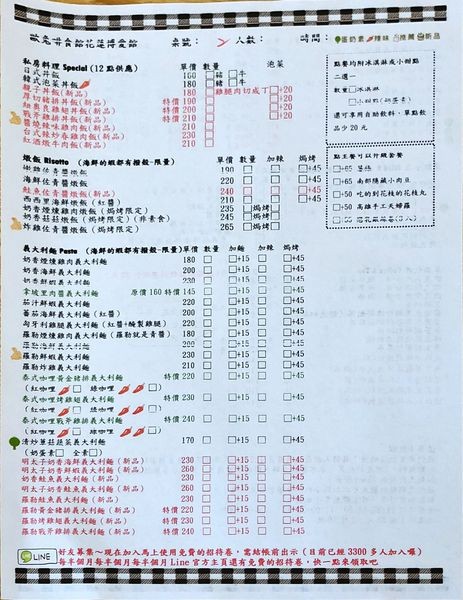 歐兔哥食館花蓮博愛館 桌號： 人數： 時間： 蛋奶素 辣味 推薦 新品
私房料理 Special (12 點供應) 單價 數量 泡菜
日式丼飯 160 豬 牛
韓式泡菜丼飯 180 豬 牛
親子丼飯(新品) 180 雞腿肉切成丁 +20
厚切豬排丼飯(新品) 特價 190 +20
紐奧良雞翅丼飯(新品) 200 +20
戰斧雞排丼飯(新品) 特價 210 +20
醬燒辣味雞肉飯(新品) 210
台式辣炒春雞肉飯(新品) 210
紅酒燉牛肉飯(新品) 210
點餐均附冰淇淋或小甜點
二選一
數量 冰淇淋
小甜點(奶蛋素)
還可享用自助飲料，單點飲
品少 20 元
燉飯 Risotto (海鮮的蝦都有撥殼-限量) 單價 數量 加辣 焗烤
190 +45
海鮮佐青醬燉飯 220 +45
鮭魚佐青醬燉飯(新品) 240 +45
西西里海鮮燉飯(紅醬) 210 +45
奶香煙燻雞肉燉飯(焗烤限定) 235 焗烤
奶香菇菇燉飯(焗烤限定)(非素食) 245 焗烤
炸雞佐青醬燉飯(焗烤限定) 265 焗烤
點主餐可以升級套餐
+65
+65 南部隱藏小肉豆
+50 吃的到花枝的花枝丸
+50 高雄手工大婦羅
+55
義大利麵 Pasta (海鮮的蝦都有撥殼-限量) 單價 數量 加麵 加辣 焗烤
奶香煙燻雞肉義大利麵 180 +15 +45
奶香海鮮義大利麵 200 +15 +45
奶香鮮蝦義大利麵 230 +15 +45
拿坡里肉醬義大利麵 原價 160 特價 145 +15 +45
茄汁鮮蝦義大利麵 220 +15 +45
蕃茄海鮮義大利麵(紅醬) 200 +15 +45
匈牙利雞腿義大利麵(紅醬+醃製雞腿) 220 +15 +45
羅勒煙燻雞肉義大利麵(羅勒就是青醬) 180 +15 +45
羅勒海鮮義大利麵 200 +15 +45
羅勒鮮蝦義大利麵 230 +15 +45
羅勒炸雞義大利麵 210 +15 +45
泰式咖哩黃金豬排義大利麵 特價 220 +15 +45
(紅咖哩 綠咖哩)
泰式咖哩烤雞翅義大利麵 特價 230 +15 +45
(紅咖哩 綠咖哩)
泰式咖哩戰斧雞排義大利麵 特價 240 +15 +45
(紅咖哩 綠咖哩)
清炒蕈菇蔬菜義大利麵 170 +15 +45
(奶蛋素 全素)
明太子奶香海鮮義大利麵(新品) 230 +15 +45
明太子奶香鮮蝦義大利麵(新品) 260 +15 +45
奶香鮭魚義大利麵(新品) 230 +15 +45
明太子奶香鮭魚義大利麵(新品) 260 +15 +45
羅勒鮭魚義大利麵(新品) 230 +15 +45
羅勒黃金豬排義大利麵(新品) 特價 220 +15 +45
羅勒烤雞翅義大利麵(新品) 特價 230 +15 +45
羅勒戰斧雞排義大利麵(新品) 特價 240 +15 +45
LINE 好友募集~現在加入馬上使用免費的招待卷，需結帳前出示 (目前已經 3300 多人加入囉)
每半個月每半個月每半個月 Line 官方主頁還有免費的招待卷，快一點來領取吧